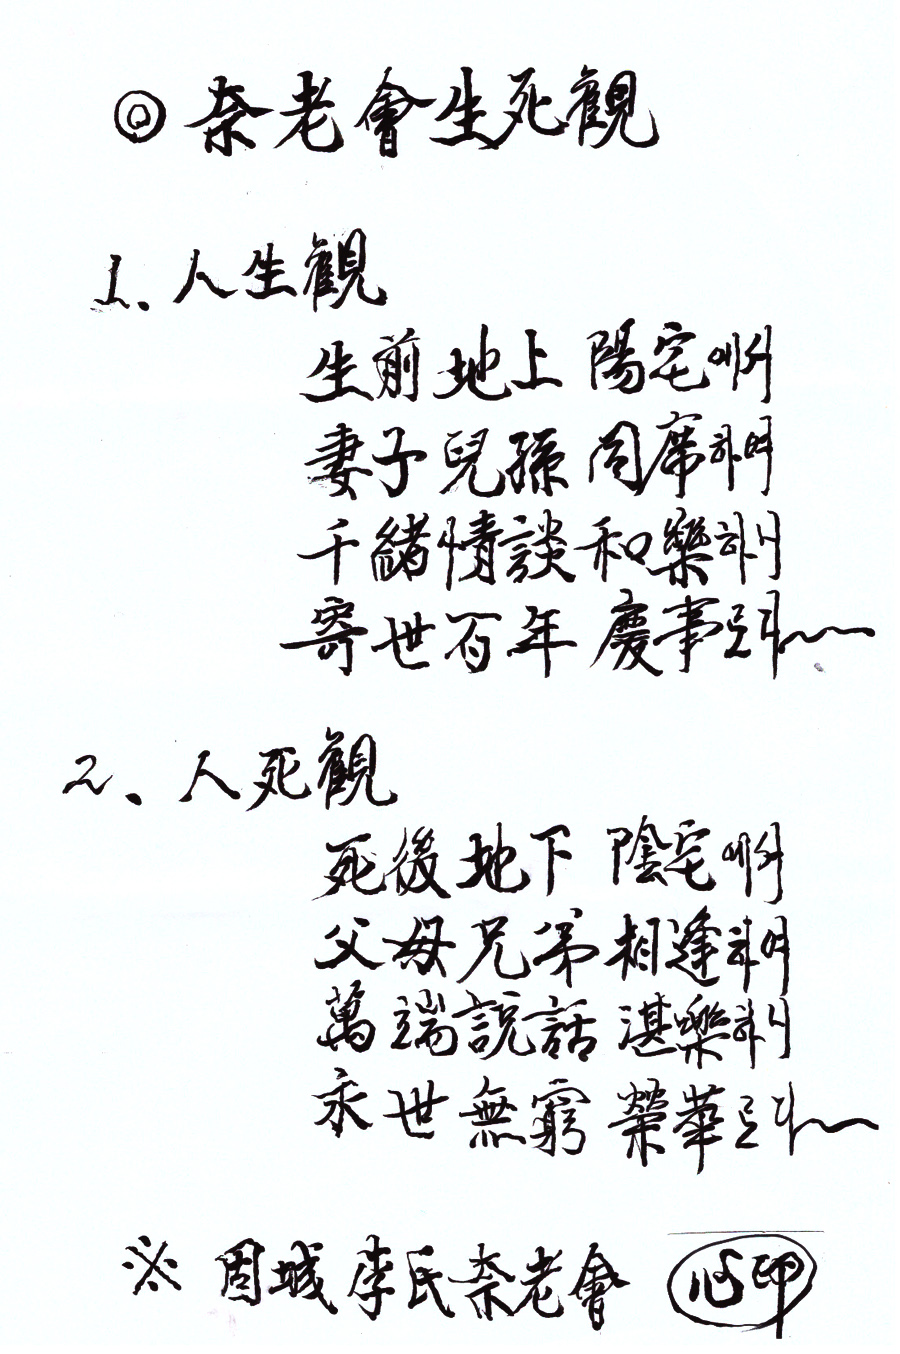 ◎ 奈老會生死觀
1. 人生觀
生前地上 陽宅에서
妻子兒孫 同席하여
千緖情談 和樂하니
寄世百年 慶事로다
2. 人死觀
死後地下 陰宅에서
父母兄弟 相逢하여
萬端説話 湛樂하니
永世無窮 榮華로다
※ 固城李氏奈老會 心印